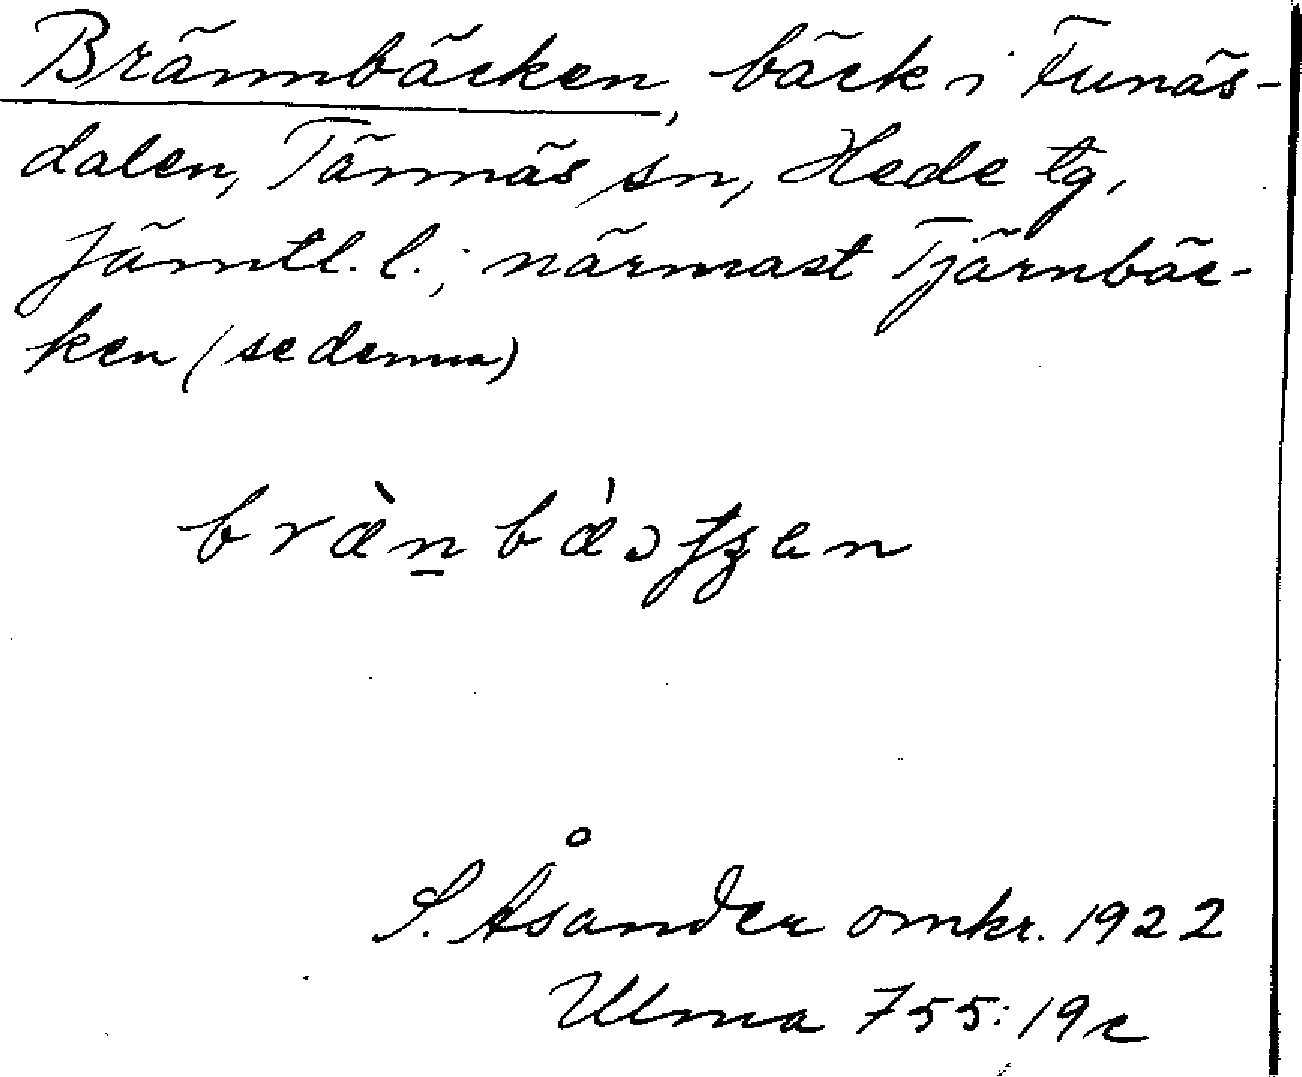 Brännbäcken, bäck i Funäs-
dalen, Tännäs sn, Hede tg,
Jämtl. l.; närmast Tjärnbäc-
ken (se denna)
S. Åsander omkr. 1922
Ulma 755: 19c